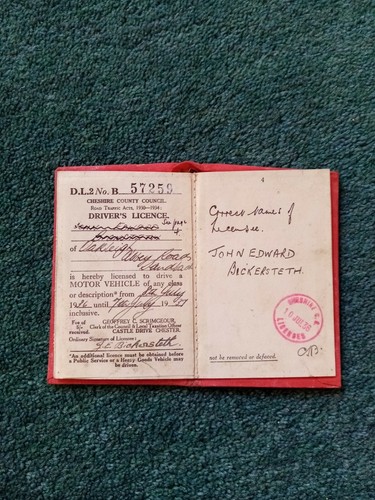 D.L.2 No. B 57259
CHESHIRE COUNTY COUNCIL.
ROAD TRAFFIC ACTS, 1930-1934:
DRIVER'S LICENCE. See page
4
of Oakleigh,
Abbey Road,
Sandbach
is hereby licensed to drive a
MOTOR VEHICLE of any class
or description* from 8th July
1936 until 7th July 1937
inclusive.
Fee of 5/- received. GEOFFREY C. SCRIMGEOUR,
Clerk of the Council & Local Taxation Officer
CASTLE DRIVE CHESTER.
Ordinary Signature of Licensee:
J.E. Bickersteth.
*An additional licence must be obtained before
a Public Service or a Heavy Goods Vehicle may
be driven.
4
Correct Names of
Licensee.
JOHN EDWARD
BICKERSTETH.
CHESHIRE C.C.
LICENSES
not be removed or defaced.